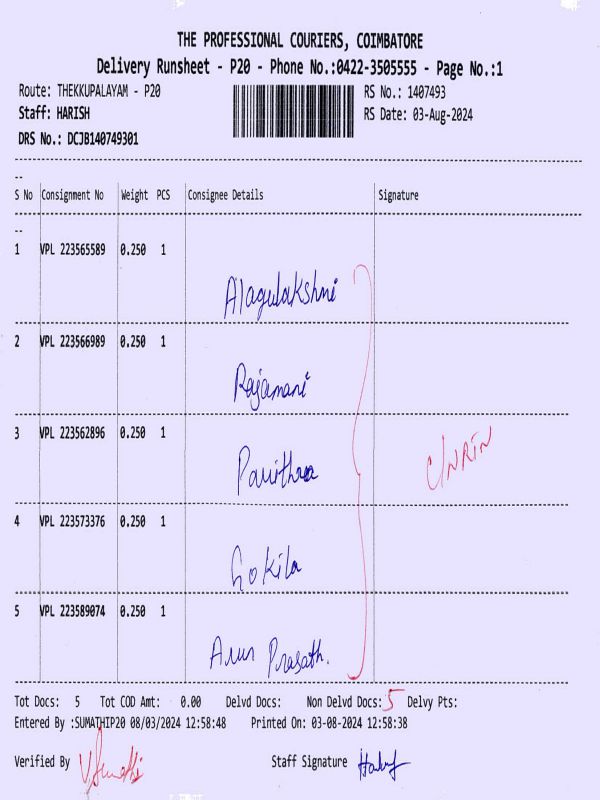 THE PROFESSIONAL COURIERS, COIMBATORE
Delivery Runsheet - P20 - Phone No.:0422-3505555 - Page No.:1
Route: THEKKUPALAYAM - P20 RS No.: 1407493
Staff: HARISH RS Date: 03-Aug-2024
DRS No.: DCJB140749301
S No Consignment No Weight PCS Consignee Details Signature
1 VPL 223565589 0.250 1
Alagulakshmi
2 VPL 223566989 0.250 1
Rajamani
3 VPL 223562896 0.250 1
Pavithra
4 VPL 223573376 0.250 1
Gokila
5 VPL 223589074 0.250 1
Arun Prasath.
Tot Docs: 5 Tot COD Amt: 0.00 Delvd Docs: Non Delvd Docs: 5 Delvy Pts:
Entered By :SUMATHIP20 08/03/2024 12:58:48 Printed On: 03-08-2024 12:58:38
Verified By V.Sumathi Staff Signature